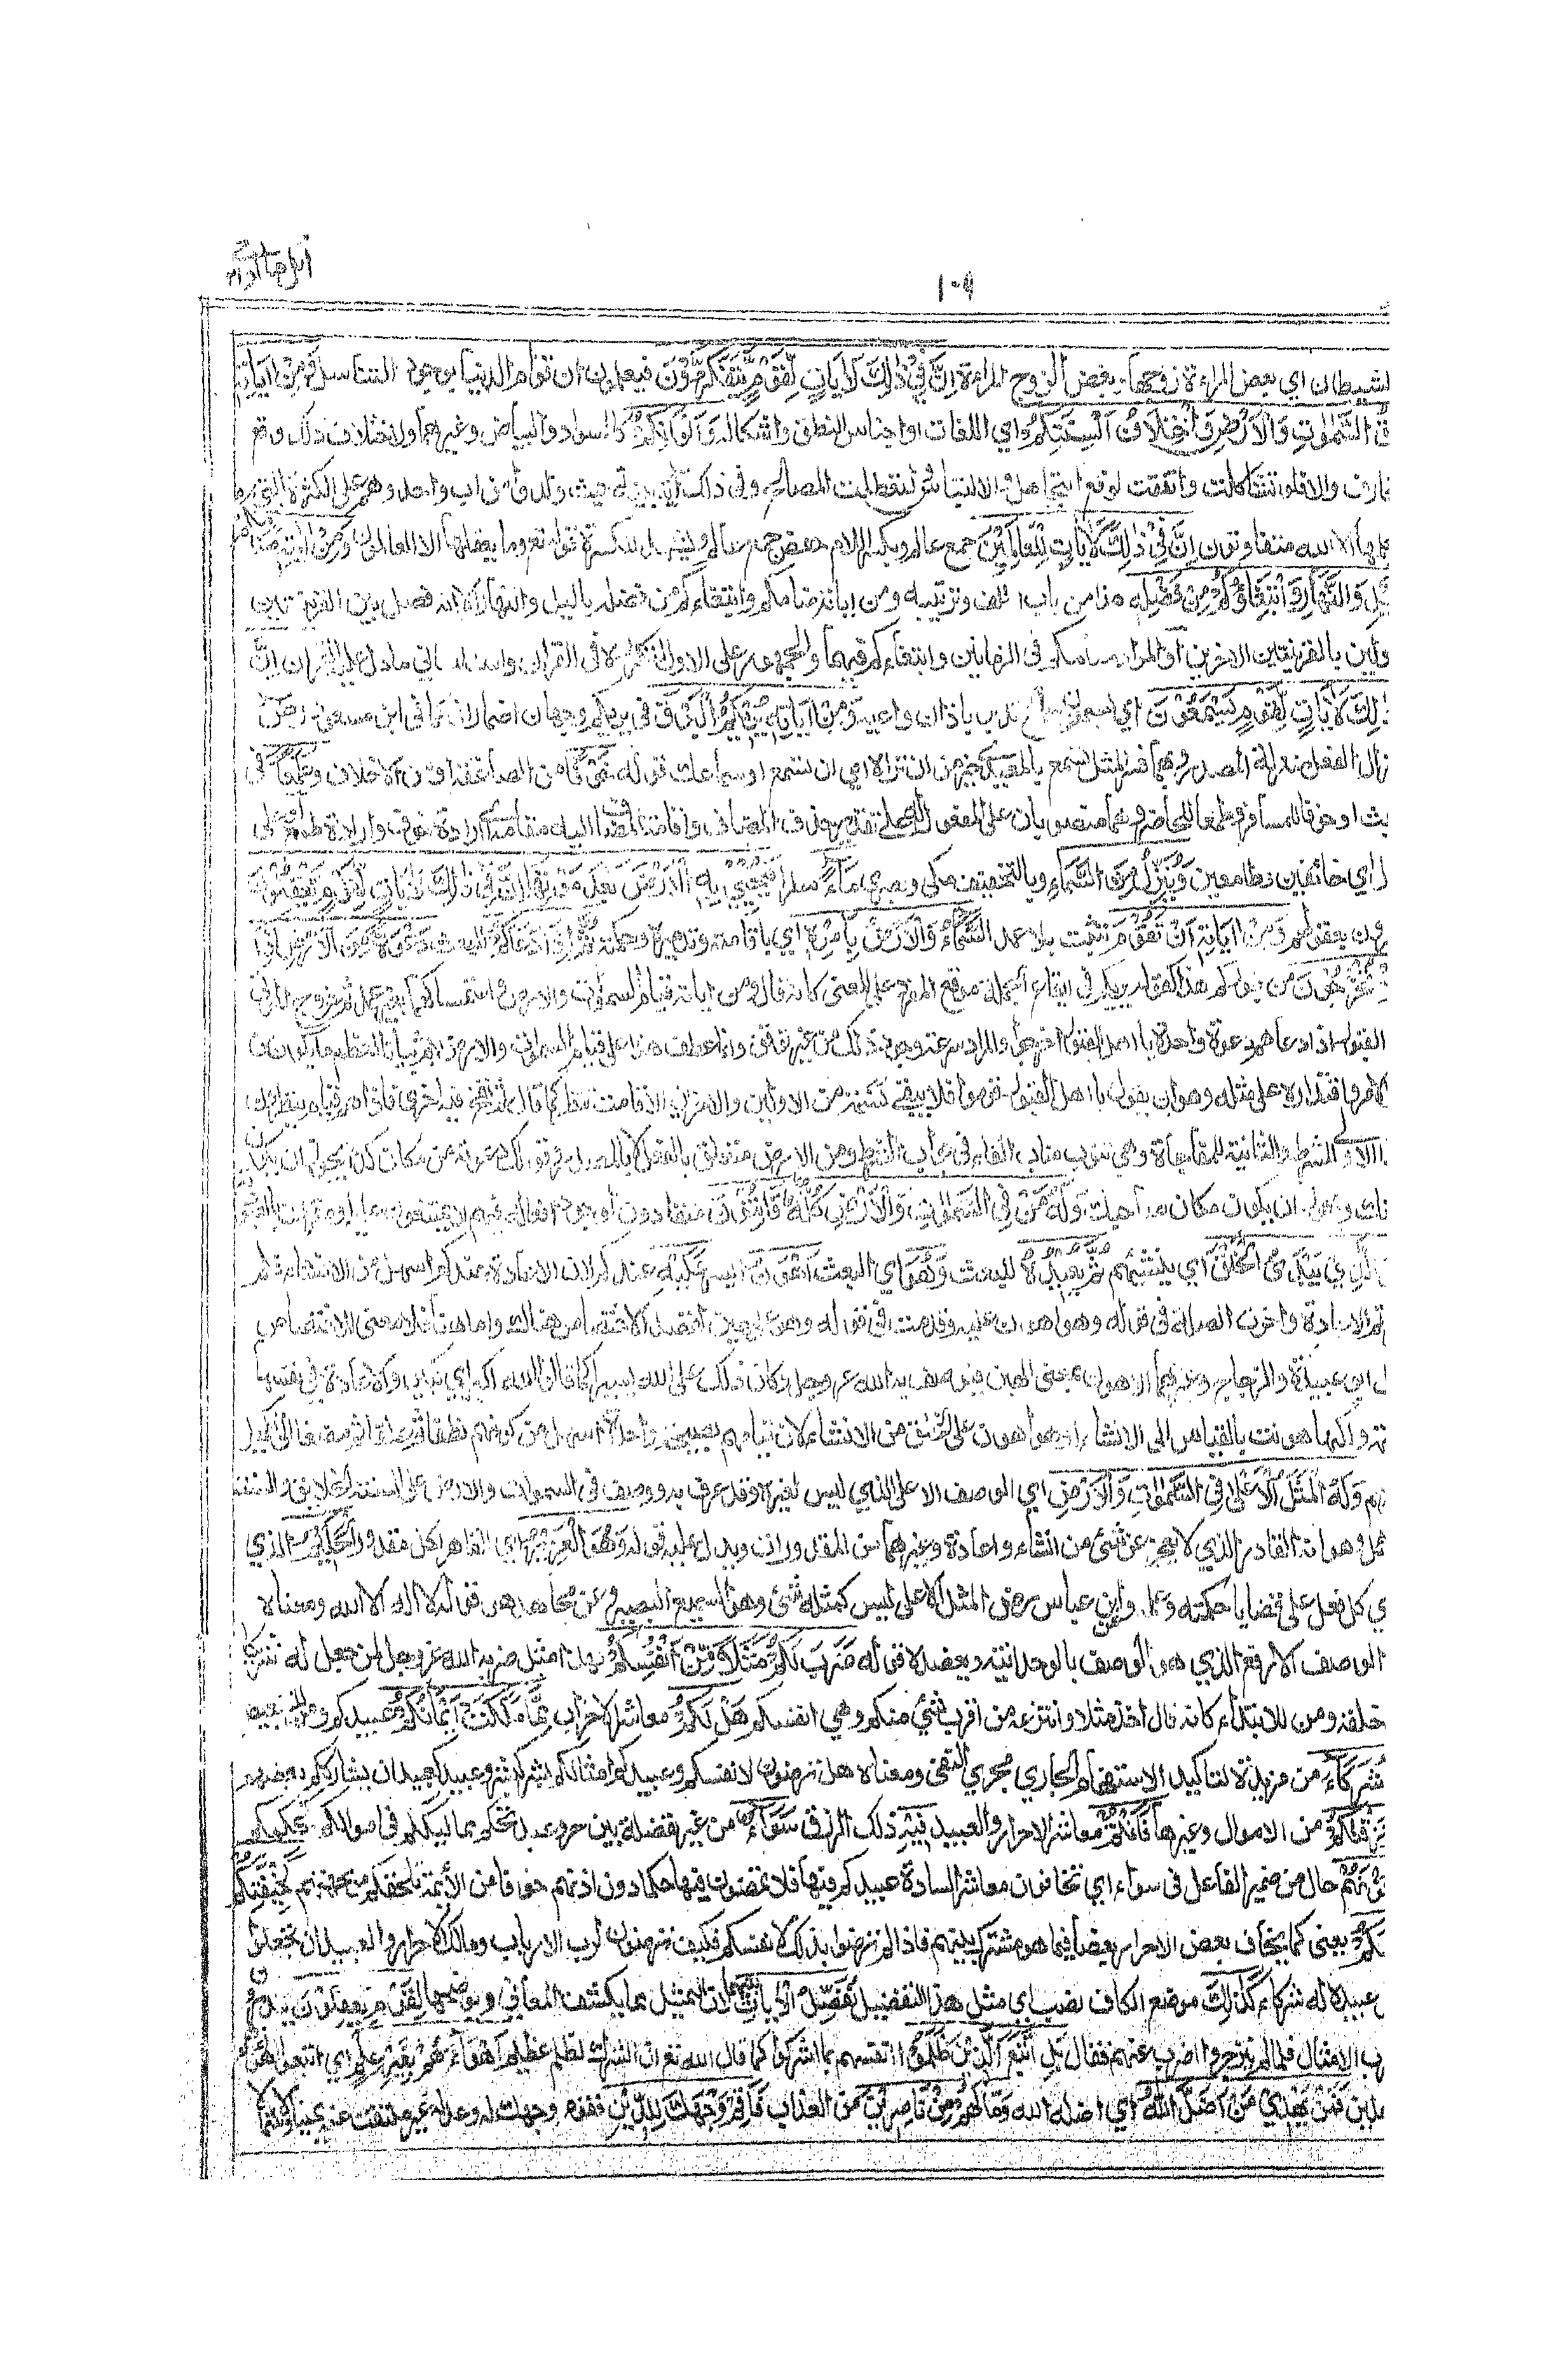 ١٠٩
الشيطان اي بعض المراءة زوجها وبغض الزوج المراءة اِنَّ فِيْ ذٰلِكَ لَاٰيَاتٍ لِّقَوْمٍ يَّتَفَكَّرُوْنَ فيعلمون ان قوام الدنيا بوجود التناسل وَمِنْ اٰيَاتِهٖ
السَّمٰوٰتِ وَالْاَرْضِ وَاخْتِلَافُ اَلْسِنَتِكُمْ اي اللغات او اجناس النطق واشكاله وَاَلْوَانِكُمْ كالسواد والبياض وغيرهما ولاختلاف ذلك وقع
التعارف والا فلو تشاكلت واتفقت لوقع التجاهل والالتباس ولتعطلت المصالح وفي ذلك اية بينة حيث ولدوا من اب واحد وهم على الكثرة التي
الا الله متفاوتون اِنَّ فِيْ ذٰلِكَ لَاٰيَاتٍ لِّلْعٰلِمِيْنَ جمع عالم وبكسر اللام حفص جمع عالم ويشهد للكسرة قوله تع وما يعقلها الا العالمون وَمِنْ اٰيٰتِهٖ
وَالنَّهَارِ وَابْتِغَاؤُكُمْ مِّنْ فَضْلِهٖ هذا من باب اللف وترتيبه ومن اياته منامكم وابتغاءكم من فضله بالليل والنهار الا انه فصل بين القرينتين
الاولين بالقرينتين الاخريين او المراد منامكم في الزمانين وابتغاءكم فيهما والجمهور على الاول لتكرره في القران واسد المعاني ما دل عليه القران اِنَّ
ذٰلِكَ لَاٰيَاتٍ لِّقَوْمٍ يَّسْمَعُوْنَ اي يسمعون سماع تدبر باذان واعية وَمِنْ اٰيَاتِهٖ يُرِيْكُمُ الْبَرْقَ في يريكم وجهان اضمار ان كما في ابن مسعود رض
انزال الفعل منزلة المصدر وبهما فسر المثل تسمع بالمعيدي خير من ان تراه اي ان تسمع او سماعك قوله خَوْفًا من الصاعقة او من الاخلاف وَّطَمَعًا في
الغيث او خوفا للمسافر وطمعا للحاضر وهما منصوبان على المفعول له على تقدير حذف المضاف واقامة المضاف اليه مقامه اي ارادة خوف وارادة طمع او على
اي خائفين وطامعين وَيُنَزِّلُ مِنَ السَّمَاءِ وبالتخفيف مكي وبصري مَاءً مطرا فَيُحْيِيْ بِهِ الْاَرْضَ بَعْدَ مَوْتِهَا اِنَّ فِيْ ذٰلِكَ لَاٰيَاتٍ لِّقَوْمٍ يَّعْقِلُوْنَ
يتفكرون بعقولهم وَمِنْ اٰيَاتِهٖ اَنْ تَقُوْمَ تثبت بلا عمد السَّمَاءُ وَالْاَرْضُ بِاَمْرِهٖ اي باقامته وتدبيره وحكمته ثُمَّ اِذَا دَعَاكُمْ للبعث دَعْوَةً مِّنَ الْاَرْضِ اِذَا
تَخْرُجُوْنَ من قبوركم هذا كقوله يريكم في ايقاع الجملة موقع المفرد على المعنى كانه قال ومن اياته قيام السموات والارض واستمساكها بغير عمد ثم خروج الموتى
القبور اذا دعاهم دعوة واحدة يا اهل القبور اخرجوا والمراد سرعة وجود ذلك من غير توقف وانما عطف هذا على قيام السموات والارض بثم بيانا لعظم ما يكون من
الامر واقتداره على مثله وهو ان يقول يا اهل القبور قوموا فلا يبقى نسمة من الاولين والاخرين الا قامت تنظر كما قال ثم نفخ فيه اخرى فاذا هم قيام ينظرون
الاولى للشرط والثانية للمفاجأة وهي تنوب مناب الفاء في جواب الشرط ومن الارض متعلق بالفعل لا بالمصدر وقولك دعوته من مكان كذا يجوز ان يكون
مكانك ويجوز ان يكون مكان صاحبك وَلَهٗ مَنْ فِي السَّمٰوٰتِ وَالْاَرْضِ كُلٌّ لَّهٗ قَانِتُوْنَ منقادون لوجود افعاله فيهم لا يمتنعون عليه او مقرون بالعبودية
الَّذِيْ يَبْدَؤُا الْخَلْقَ اي ينشئهم ثُمَّ يُعِيْدُهٗ للبعث وَهُوَ اي البعث اَهْوَنُ ايسر عَلَيْهِ عندكم لان الاعادة عندكم اسهل من الانشاء فلم
انكرتم الاعادة واخرت الصلة في قوله وهو اهون عليه وقدمت في قوله وهو علي هين لقصد الاختصاص هناك واما هنا فلا معنى للاختصاص
قال ابو عبيدة والزجاج وغيرهما الاهون بمعنى الهين فيوصف به الله عز وجل وكان ذلك على الله يسيرا كما قالوا الله اكبر اي كبير والاعادة في نفسها
عظيمة ولكنها هونت بالقياس الى الانشاء او هو اهون على الخلق من الانشاء لان قيامهم بصيحة واحدة اسهل من كونهم نطفا ثم علقا ثم مضغا الى تكميل
خلقهم وَلَهُ الْمَثَلُ الْاَعْلٰى فِي السَّمٰوٰتِ وَالْاَرْضِ اي الوصف الاعلى الذي ليس لغيره وقد عرف به ووصف في السموات والارض على السنة الخلائق والسنة
الدلائل وهو انه القادر الذي لا يعجز عن شئ من انشاء واعادة وغيرهما من المقدورات ويدل عليه قوله وَهُوَ الْعَزِيْزُ اي القاهر لكل مقدور الْحَكِيْمُ الذي
يجري كل فعل على قضايا حكمته وعلمه وعن ابن عباس رض المثل الاعلى ليس كمثله شئ وهو السميع البصير وعن مجاهد هو قول لا اله الا الله ومعناه
الوصف الارفع الذي هو الوصف بالوحدانية ويعضده قوله ضَرَبَ لَكُمْ مَّثَلًا مِّنْ اَنْفُسِكُمْ فهذا مثل ضربه الله عز وجل لمن جعل له شريكا
خلقه ومن للابتداء كانه قال اخذ مثلا وانتزعه من اقرب شئ منكم وهي انفسكم هَلْ لَّكُمْ معاشر الاحرار مِّمَّا مَلَكَتْ اَيْمَانُكُمْ عبيدكم ومن للتبعيض
شُرَكَاءَ من مزيدة لتاكيد الاستفهام الجاري مجرى النفي ومعناه هل ترضون لانفسكم وعبيدكم امثالكم بشر كبشر وعبيد كعبيد ان يشارككم بعضهم
رَزَقْنٰكُمْ من الاموال وغيرها فَاَنْتُمْ معاشر الاحرار والعبيد فِيْهِ ذلك الرزق سَوَاءٌ من غير تفصلة بين حر وعبد تحكم مماليككم في اموالكم كحكمكم
تَخَافُوْنَهُمْ حال من ضمير الفاعل في سواء اي تخافون معاشر السادة عبيدكم فيها فلا تمضون فيها حكما دون اذنهم خوفا من لائمة تلحقكم من جهتهم كَخِيْفَتِكُمْ
اَنْفُسَكُمْ يعني كما يخاف بعض الاحرار بعضا فيما هو مشترك بينهم فاذا لم ترضوا بذلك لانفسكم فكيف ترضون لرب الارباب ومالك الاحرار والعبيد ان تجعلوا
عبيده له شركاء كَذٰلِكَ موضع الكاف نصب اي مثل هذا التفصيل نُفَصِّلُ الْاٰيَاتِ نبينها لان التمثيل مما يكشف المعاني ويوضحها لِقَوْمٍ يَّعْقِلُوْنَ يتدبرون
ضرب الامثال فلما لم ينزجروا اضرب عنهم فقال بَلِ اتَّبَعَ الَّذِيْنَ ظَلَمُوْا انفسهم بما اشركوا كما قال الله تع ان الشرك لظلم عظيم اَهْوَاءَهُمْ بِغَيْرِ عِلْمٍ اي اتبعوا اهواءهم
جاهلين فَمَنْ يَّهْدِيْ مَنْ اَضَلَّ اللّٰهُ اي اضله الله وَمَا لَهُمْ مِّنْ نَّاصِرِيْنَ من العذاب فَاَقِمْ وَجْهَكَ لِلدِّيْنِ فقوم وجهك له وعدله غير ملتفت عنه يمينا ولا شمالا